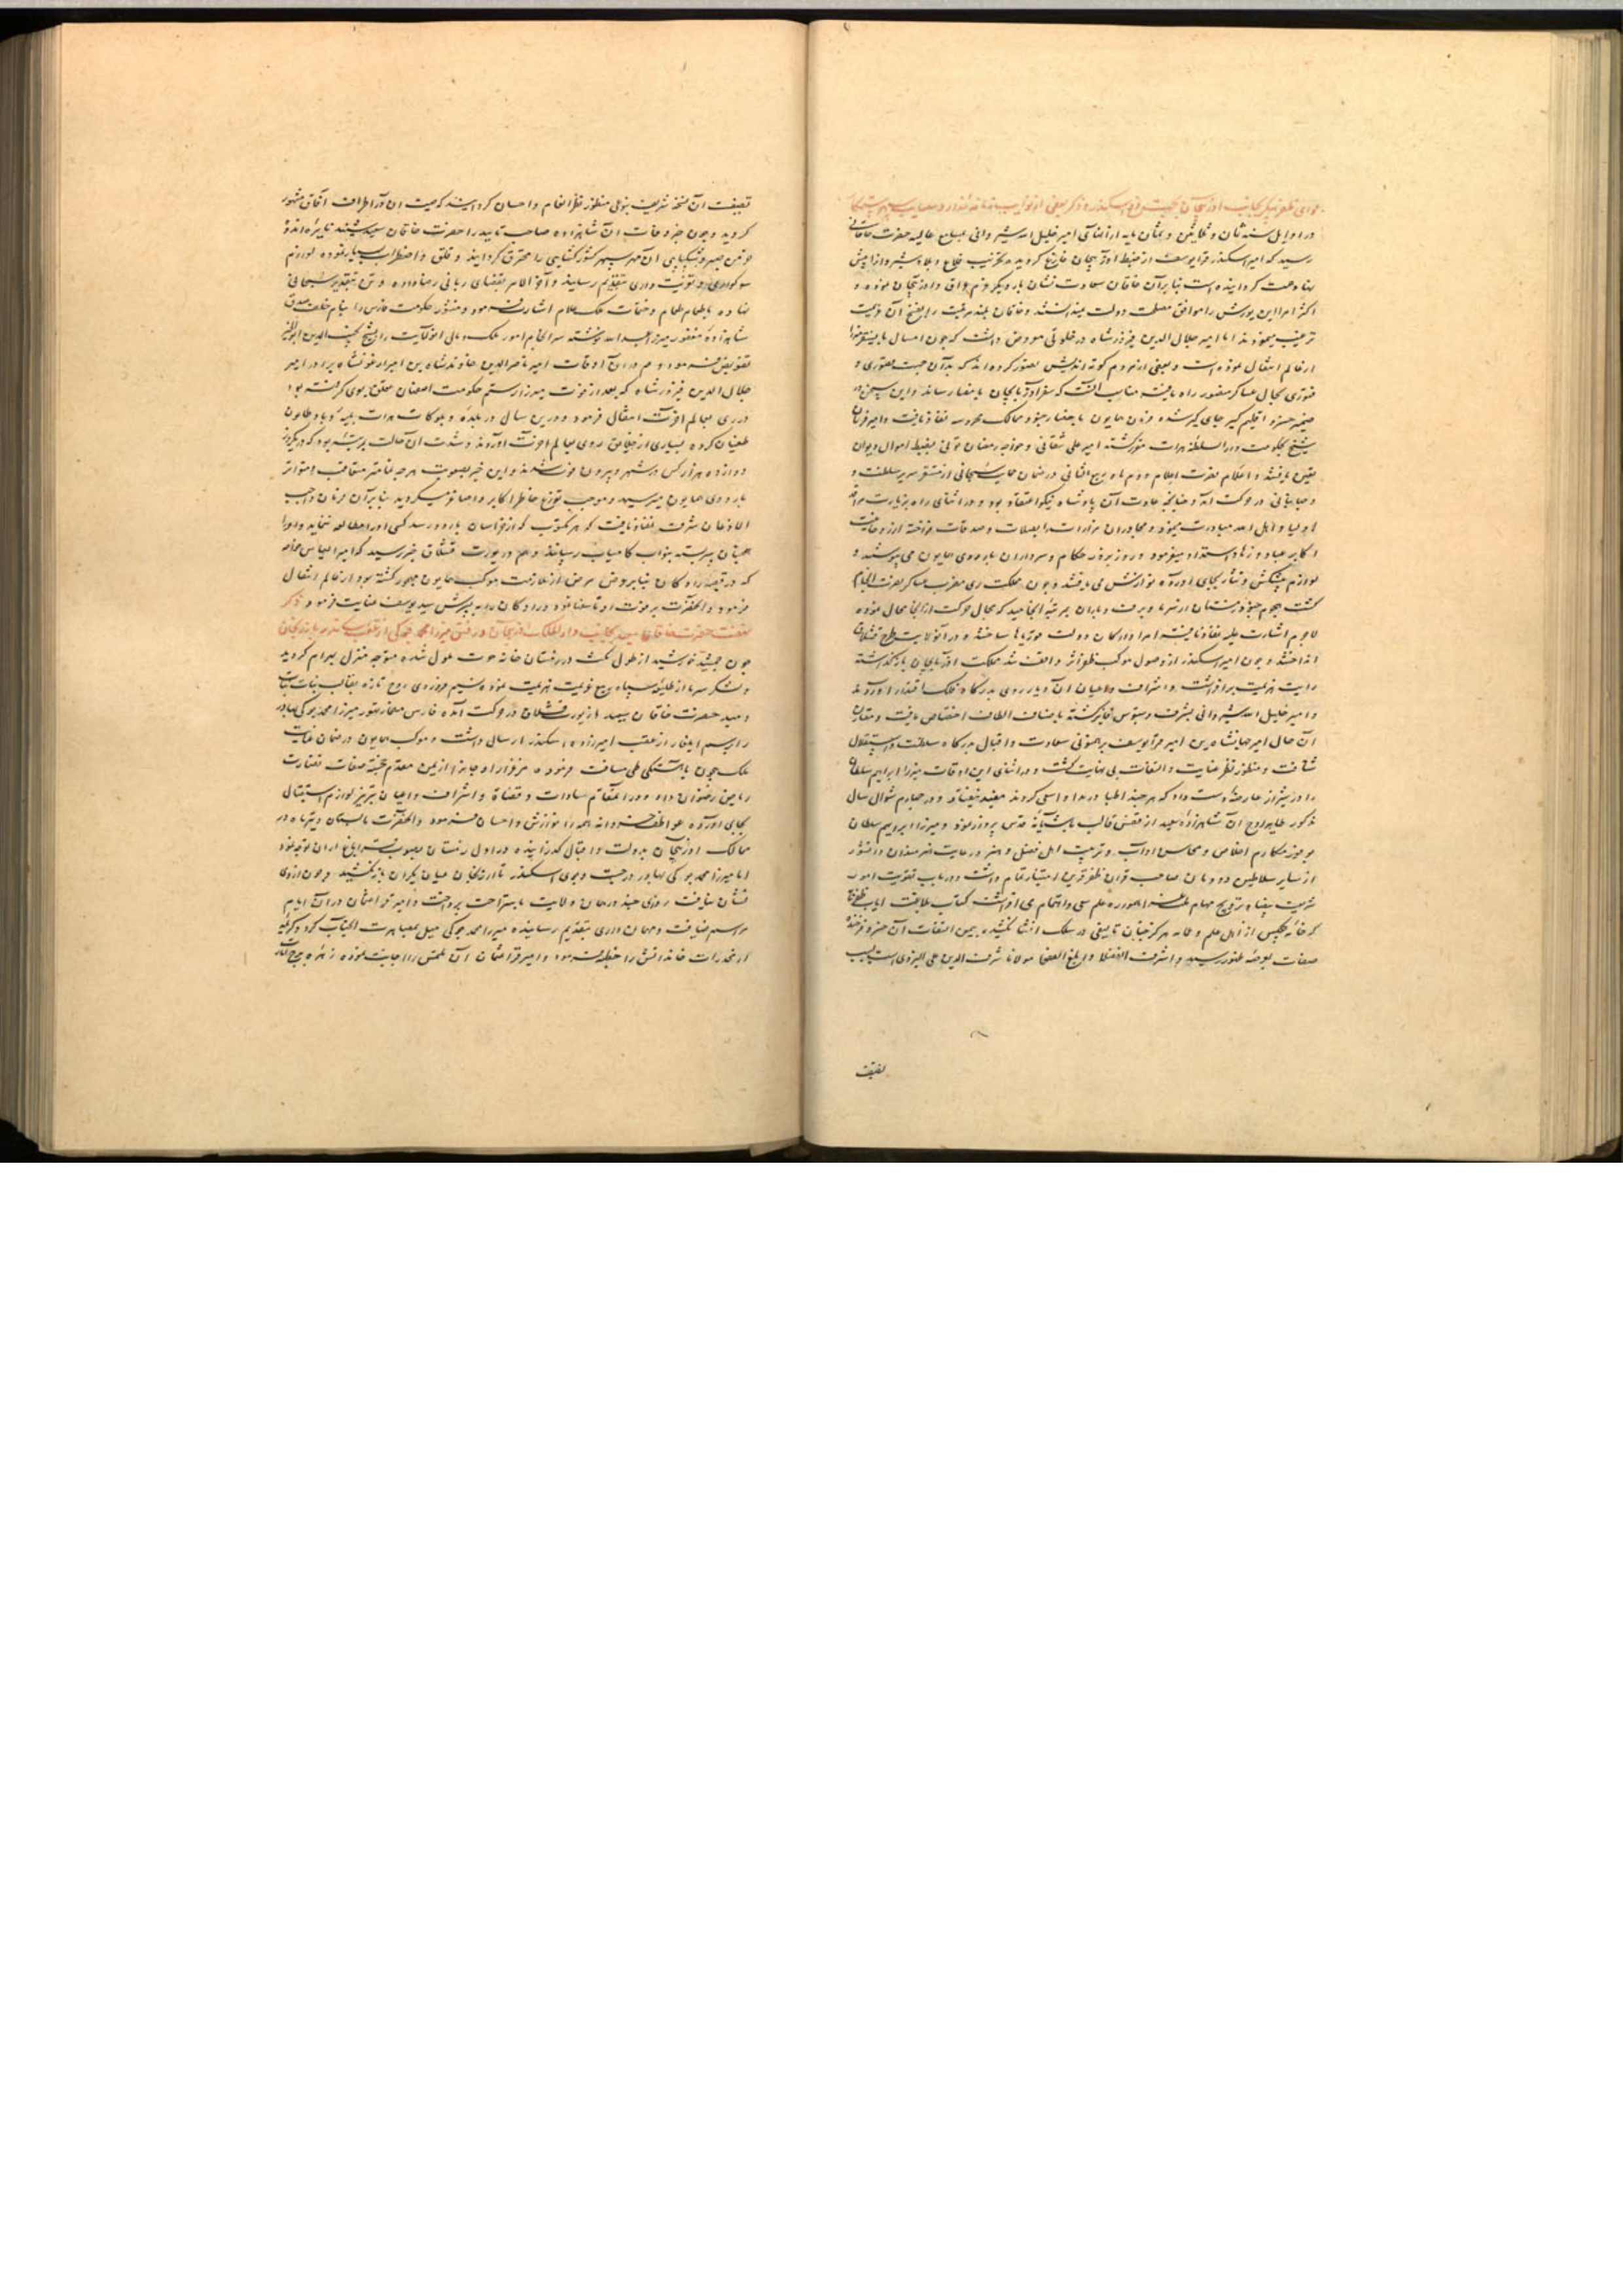 در اوایل سنه ثمان و ثلاثین و ثمانمایه از انهای امیر خلیل الله شیروانی بمسامع عالیه حضرت خاقانی
رسید که امیر اسکندر قرا یوسف از ضبط آذربیجان فارغ گردیده بتخریب قلاع و بلاد شیروان
بنابرآن خاقان سعادت نشان بار دیگر عزم عراق و آذربیجان نموده و
اکثر امرا این یورش را موافق مصلحت دولت میدانستند و خاقان بلند مرتبت را بفتح آن ولایت
ترغیب مینمودند اما امیر جلال الدین فیروزشاه در خلوتی معروض داشت که چون امسال بایسنغر میرزا
از عالم انتقال نموده است و بعضی از مردم کوته اندیش تصور کرده اند که بدان جهت قصوری و
فتوری بحال عساکر منصور راه یافته مناسب آنست که سفر آذربایجان باخضار رساند و این سخن در
ضمیر خسرو اقلیم گیر جای گیر شده فرمان همایون باحضار جنود ممالک محروسه نفاذ یافت و امیر فرمان
شیخ بحکومت دار السلطنه هرات مقرر گشته امیر علی شقانی و خواجه رمضان تونی بضبط اموال دیوان
تعیین یافتند و اعلام نصرت اعلام دوم ماه ربیع الثانی در ضمان حمایت سبحانی از مستقر سریر سلطنت و
جهانبانی در حرکت آمد و چنانچه عادت آن پادشاه نیکو اعتقاد بود در اثنای راه بزیارت مراقد
اولیا و اهل الله مبادرت مینمود و مجاوران مزارات را بصلات و صدقات نواخته از روحانیت
اکابر عباد و زهاد استمداد میفرمود و روز بروز حکام و سرداران باردوی همایون می پیوستند و
لوازم پیشکش و نثار بجای آورده نوازش می یافتند و چون مملکت ری مضرب عساکر نصرت انجام
گشت هجوم جنود زمستان از سرما و برف و باران بمرتبه انجامید که مجال حرکت از آنجا محال نموده
لاجرم اشارت علیه نفاذ یافته امرا و ارکان دولت مورتها ساختند و در آن ولایت طرح قشلاق
انداختند و چون امیر اسکندر از وصول موکب ظفر اثر واقف شد مملکت آذربایجان بازگذاشته
رایت هزیمت برافراشت و اشراف و اعیان آن دیار روی بدرگاه فلک اقتدار آوردند
و امیر خلیل الله شیروانی بشرف دستبوس فایز گشته باصناف الطاف اختصاص یافت و مقارن
آن حال امیر جهانشاه بن امیر قرا یوسف برهنمونی سعادت و اقبال بدرگاه سلطنت و استقلال
شتافت و منظور نظر عنایت و التفات بی نهایت گشت و در اثنای این اوقات میرزا ابراهیم سلطان
را در شیراز عارضه دست داد که هر چند اطبا در مداوا سعی کردند مفید نیفتاد و در چهارم شوال سال
مذکور طایر روح آن شاهزاده سعید از قفس قالب باشیانه قدس پرواز نمود و میرزا ابراهیم سلطان
بوفور مکارم اخلاق و محاسن آداب و تربیت اهل فضل و هنر و رعایت هنرمندان دانشور
از سایر سلاطین دودمان صاحب قران ظفر قرین امتیاز تمام داشت و در باب تقویت امور
شریعت پناه و ترویج مهام علم سعی و اهتمام می افراشت
که خانه هیچکس از اهل علم و هرگز چنان تالیفی در سلک انشا نکشیده بیمن التفات آن خسرو فرخنده
صفات بعرصه ظهور رسید و اشرف الافضلا و ابلغ الفصحا مولانا شرف الدین علی الیزدی است بسبب
تصنیف
تصنیف آن نسخه شریف بنوعی منظور نظر انعام و احسان گردانید که صیت آن در اطراف آفاق مشهور
گردید و چون خبر وفات آن شاهزاده صاحب تایید را حضرت خاقان سعید شنید نایره اندوه
خرمن صبر و شکیبایی آن مهر سپهر کشورگشایی را محترق گردانید و قلق و اضطراب بسیار نموده لوازم
سوگواری و تعزیت داری بتقدیم رسانید و آخر الامر بقضای ربانی رضا داده و تن بتقدیر سبحانی
نهاده باطعام طعام و ختمات ملک علام اشارت فرمود و منشور حکومت فارس را بنام خلف صدق
شاهزاده مغفور میرزا عبد الله نوشته سرانجام امور ملک و مالی آن ولایت را بشیخ محب الدین ابوالخیر
تفویض فرمود و هم در آن اوقات امیر ناصر الدین خاوندشاه بن امیر ارغونشاه برادر امیر
جلال الدین فیروزشاه که بعد از فوت میرزا رستم حکومت اصفهان تعلق بوی گرفته بود
در ری بعالم آخرت انتقال فرمود و درین سال در بلده و بلوکات هرات بلیه وبا و طاعون
طغیان کرده بسیاری از خلایق روی بعالم آخرت آوردند و شدت آن حالت بمرتبه بود که در یکروز
دوازده هزار کس در شهر و بیرون فوت شدند و این خبر بصعوبت هر چه تمامتر متعاقب و متواتر
باردوی همایون میرسید و موجب توزع خاطر اکابر و اصاغر میگردید بنابرآن فرمان واجب
الاذعان شرف نفاذ یافت که هر مکتوب که از خراسان باردو رسد کسی آنرا مطالعه ننماید و آنرا
همچنان سربسته بنواب کامیاب رسانند و هم در یورت قشلاق خبر رسید که امیر الیاس خواجه
که در قصبه رادکان بنابر عروض مرض از ملازمت موکب همایون مهجور گشته بود از عالم انتقال
فرمود و آنحضرت بر فوت او تاسف نموده رادکان را به پسرش سید یوسف عنایت فرمود ذکر
نهضت حضرت خاقان سعید بجانب دار الملک آذربیجان و رفتن میرزا محمد جوکی از عقب اسکندر
چون جمشید خورشید از طول مکث در زمستان خانه حوت ملول شده متوجه منزل بهرام گردید
و لشکر سرما از طلیعه سپاه ربیع عزیمت هزیمت نموده نسیم نوروزی روح تازه بقالب نبات
دمید حضرت خاقان سعید از یورت قشلاق در حرکت آمده فارس مضمار تهور میرزا محمد جوکی بهادر
را برسم ایلغار از عقب امیرزاده اسکندر ارسال داشت و موکب همایون در ضمان عنایت
ملک بیچون باهستگی طی مسافت فرموده مرغزار اوجان را از یمن مقدم خجسته صفات نضارت
ریاض رضوان داد و در آن مقام سادات و قضاة و اشراف و اعیان تبریز لوازم استقبال
بجای آورده عواطف خسروانه همه را نوازش و احسان فرمود و آنحضرت تابستان و تیرماه در
ممالک آذربیجان بدولت و اقبال گذرانیده در اول زمستان بصوب قراباغ اران توجه نمود
اما میرزا محمد جوکی بهادر در جست و جوی اسکندر تا ارزنجان عنان یکران بازنکشید و چون از وی
نشان نیافت روزی چند در همان ولایت باستراحت پرداخت و امیر قرا عثمان در آن ایام
مراسم ضیافت و مهمان داری بتقدیم رسانیده میرزا محمد جوکی میل بمصاهرت آنجناب کرد و کریمه
از مخدرات خاندانش را خطبه فرمود و امیر قرا عثمان آن ملتمس را اجابت نموده